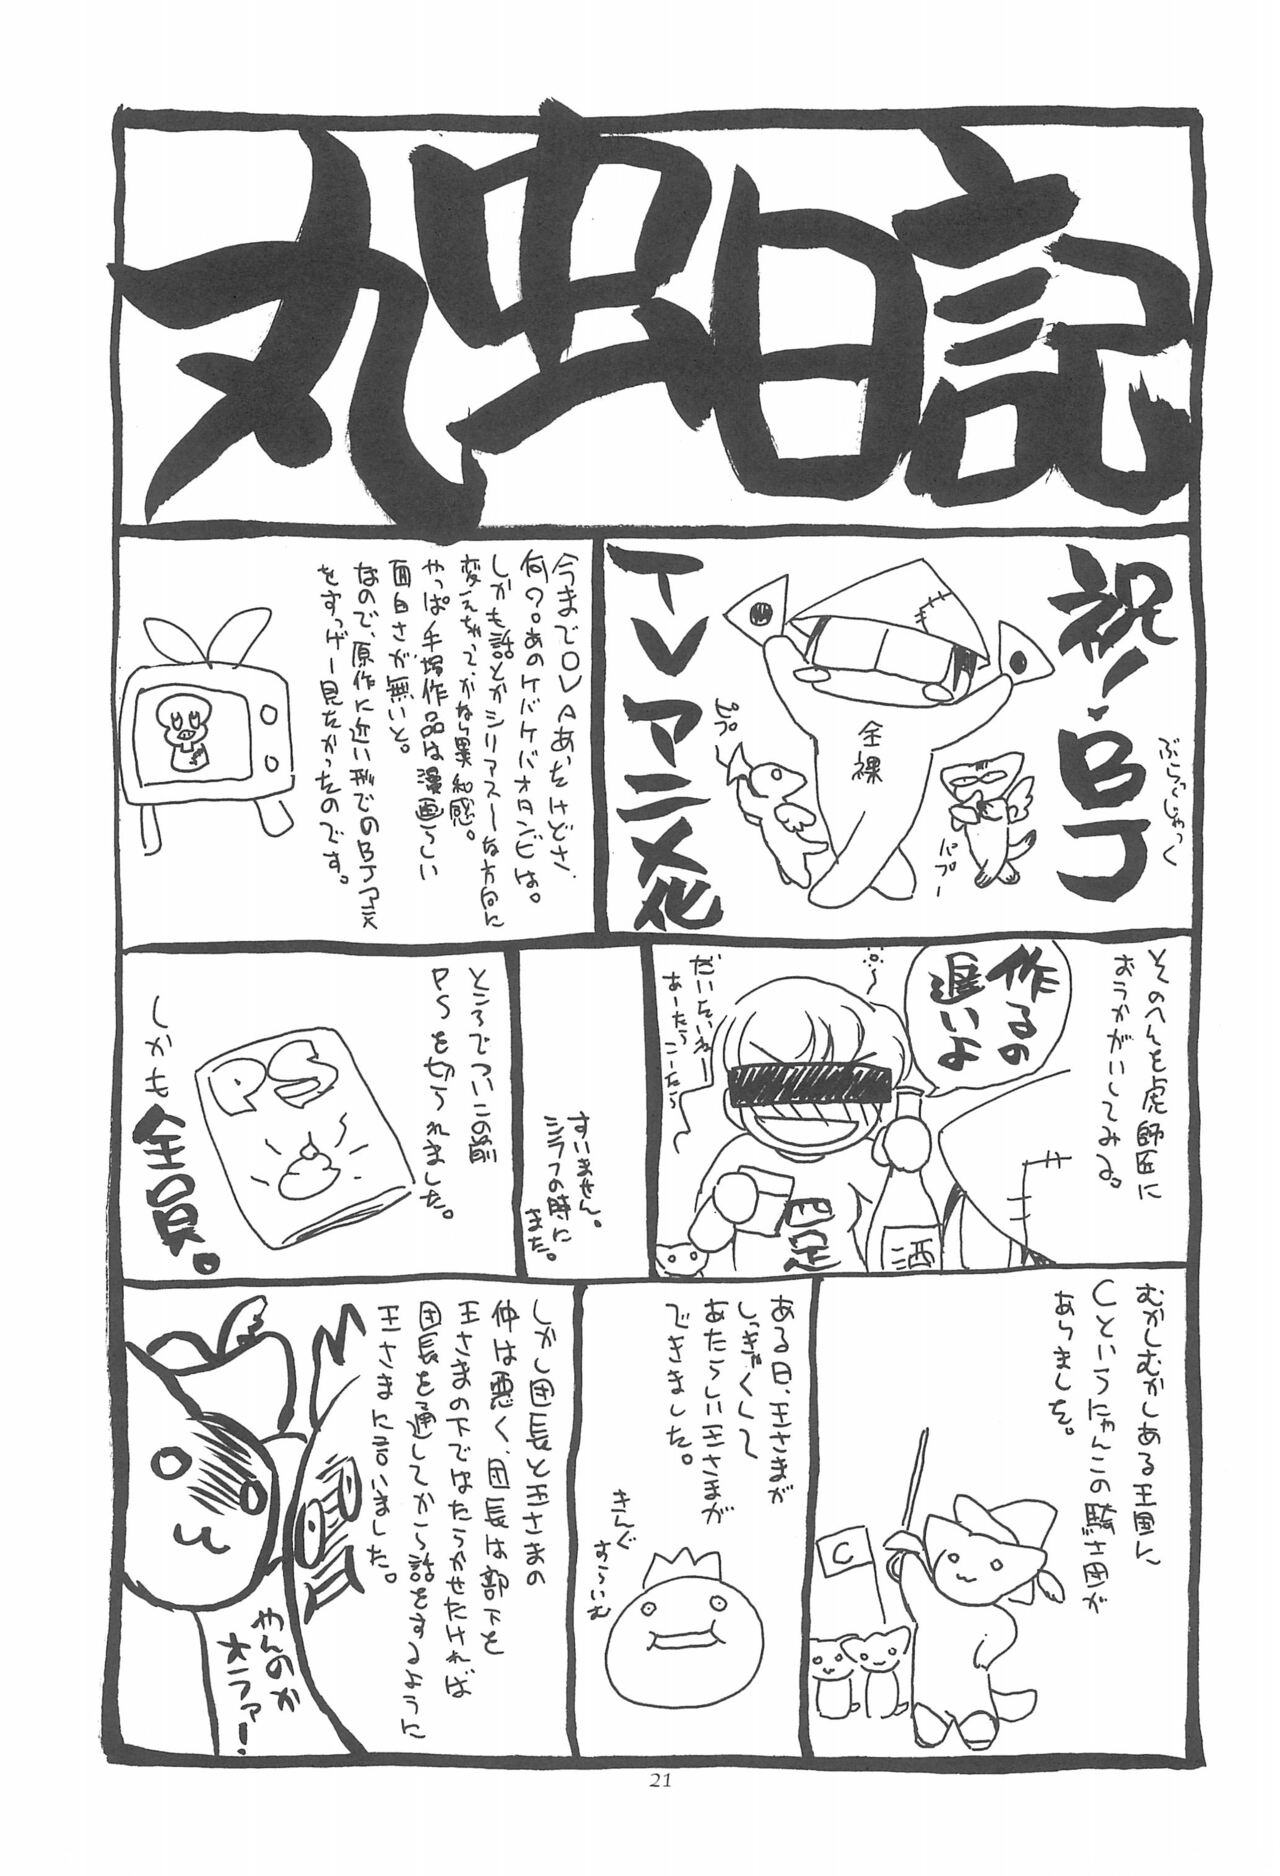 丸虫日記
祝！BJ
ぶらっくじゃっく
TVアニメ化
全裸
ピプー
パプー
今までOVAあったけどさ、
何？。あのケバケバオタンビは。
しかも話とかシリアスーな方向に
変えちゃってかなり異和感。
やっぱ手塚作品は漫画らしい
面白さが無いと。
なので、原作に近い形でのBJアニメ
をすっげー見たかったのです。
そのへんを虎師匠に
おうかがいしてみる。
作るの
遅いよ
だいたいねー
あーたらこーたら
酒
すいません。
シラフの時に
また。
ところでついこの前
PSを切られました。
PS
しかも
全員。
むかしむかしある王国に
Cというにゃんこの騎士団が
ありました。
C
ある日、王さまが
しっきゃくして
あたらしい王さまが
できました。
きんぐ
すらいむ
しかし団長と王さまの
仲は悪く、団長は部下を
王さまの下ではたらかせたければ
団長を通してから話をするように
王さまに言いました。
やんのか
オラァー!
21